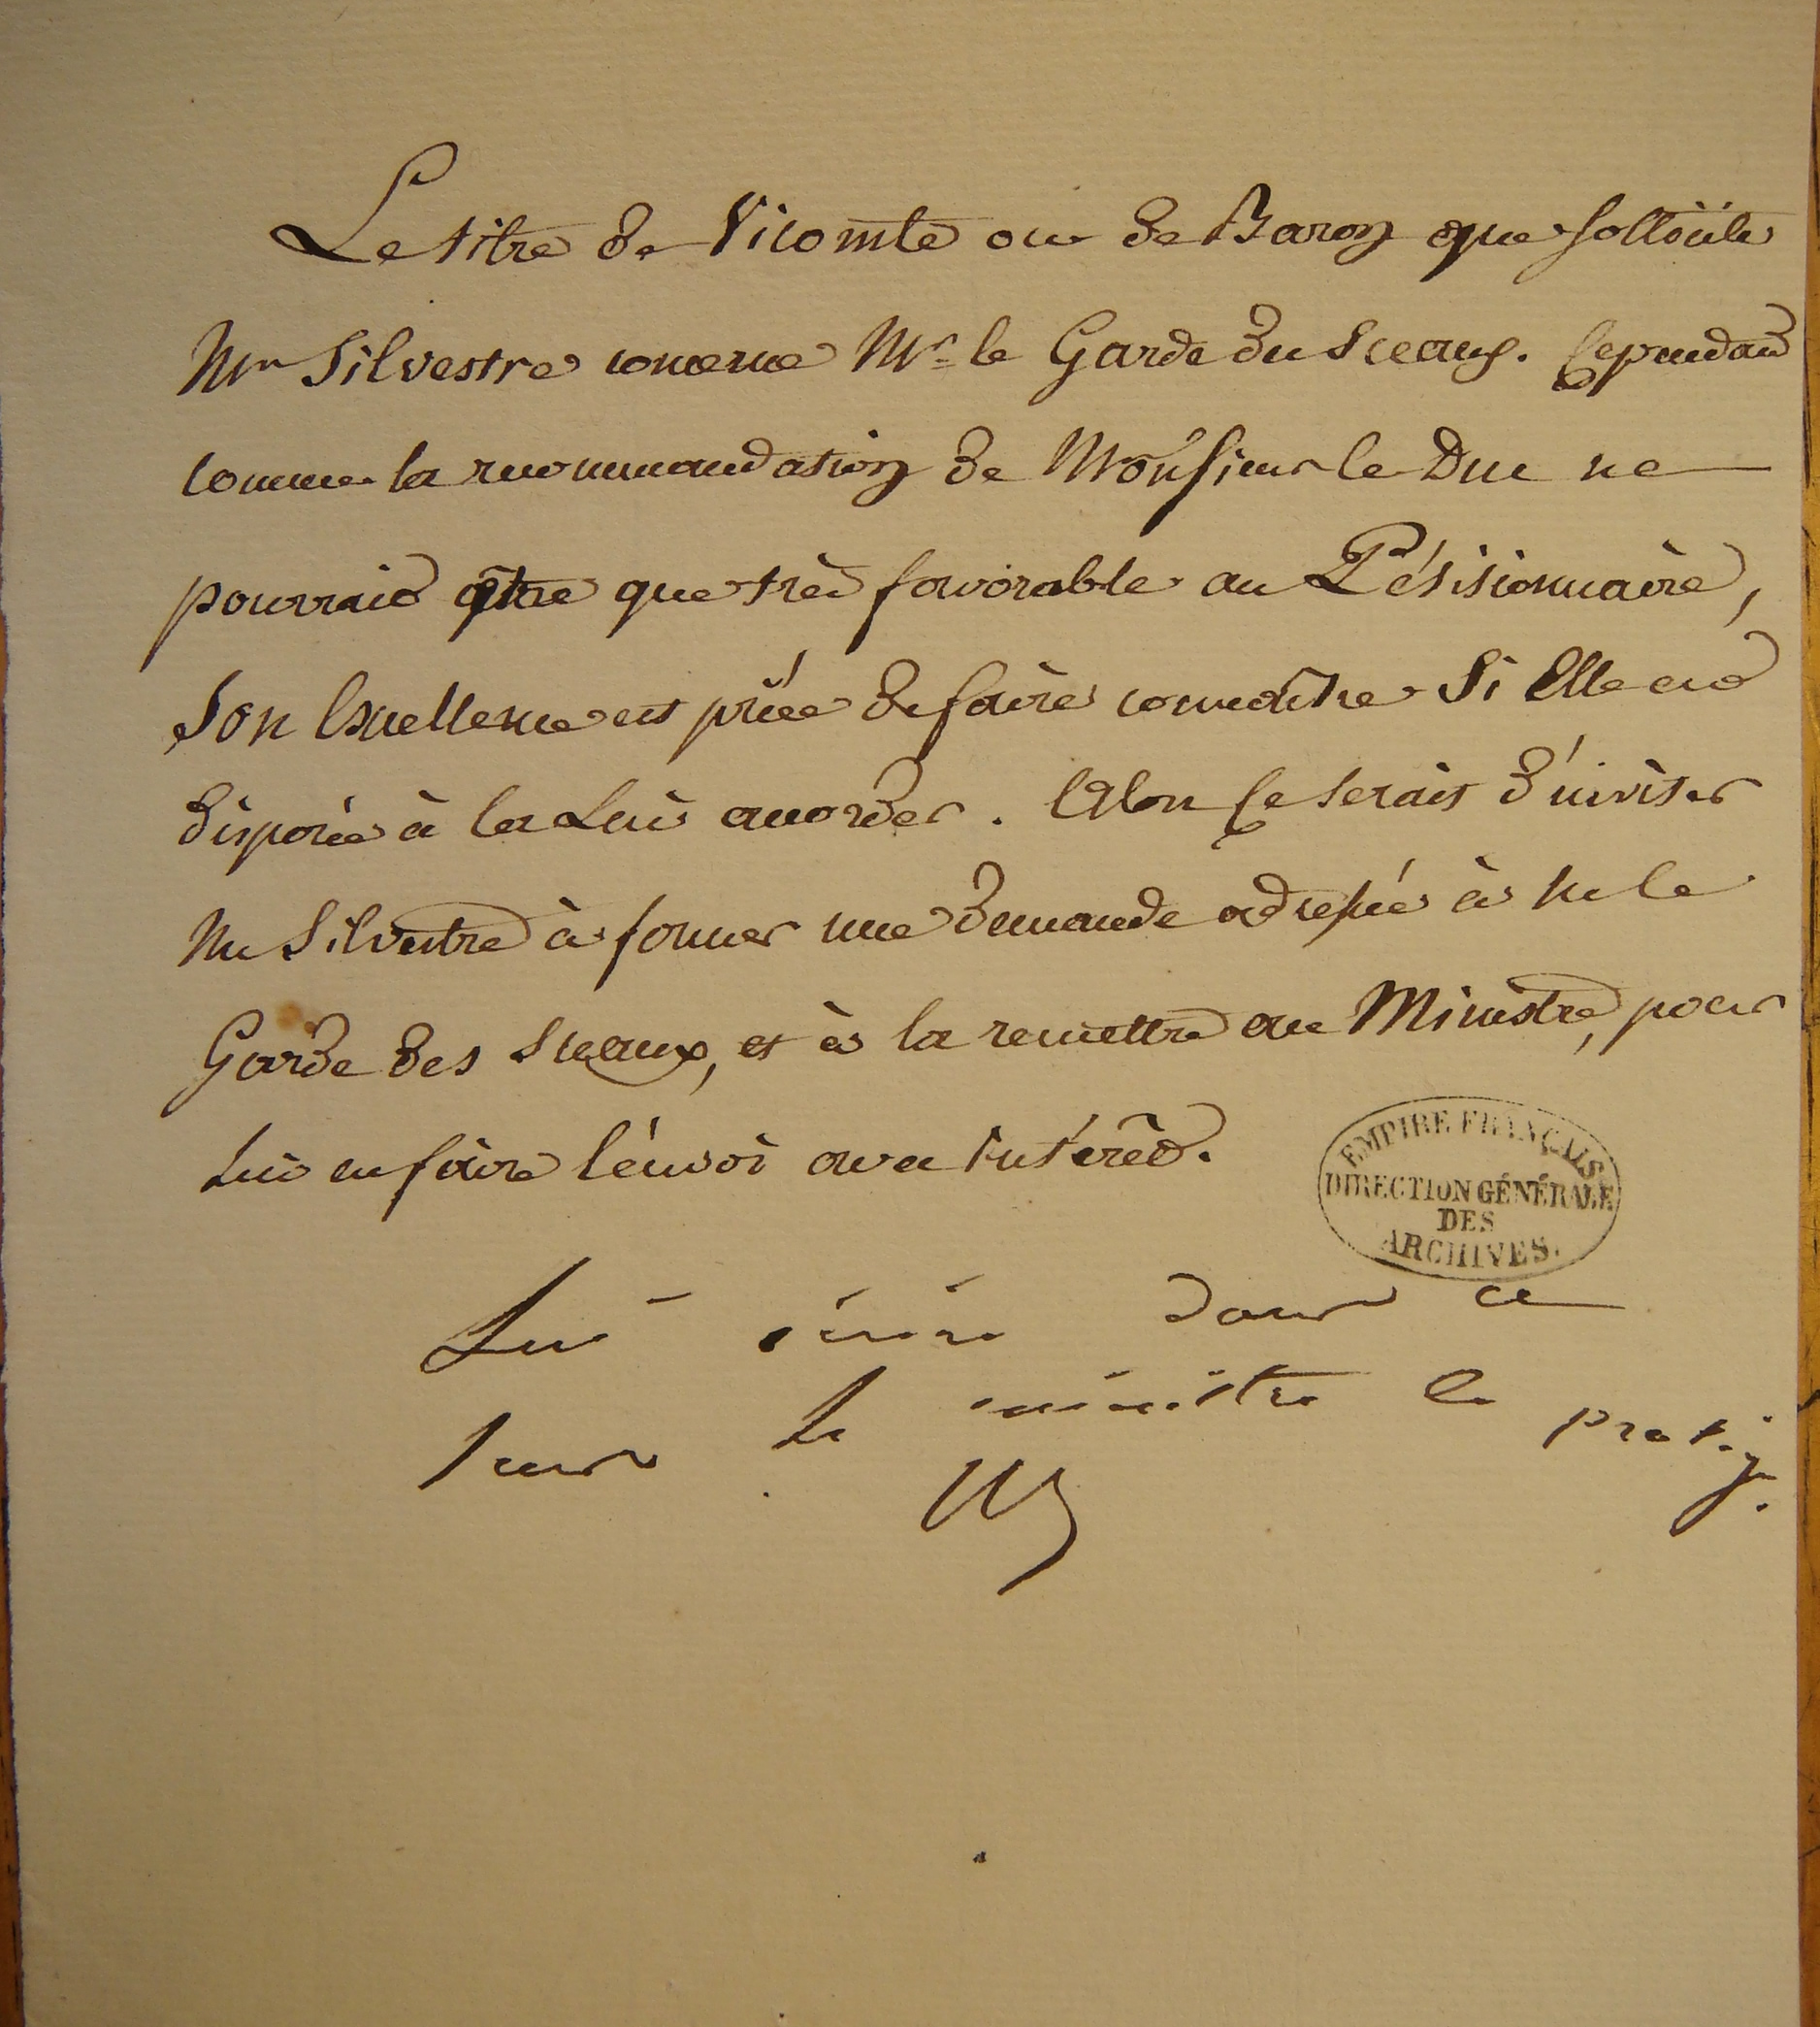 Le titre de Vicomte ou de Baron que sollicite
Mr Silvestre concerne Mr le Garde du Sceaux. Cependant
comme la recommandation de Monsieur le Duc ne
pourrait être que très favorable au Pétitionnaire,
Son Excellence est priée de faire connaître Si Elle est
disposée à la Lui accorder. Alors Ce serait d'inviter
Mr Silvestre à former une demande adressée à Mr le
Garde des Sceaux, et à la remettre au Ministre, pour
Lui en faire l'envoi avec Intérêt.
EMPIRE FRANÇAIS
DIRECTION GÉNÉRALE
DES
ARCHIVES.
Lui écrire dans ce
sens le ministre le protège.